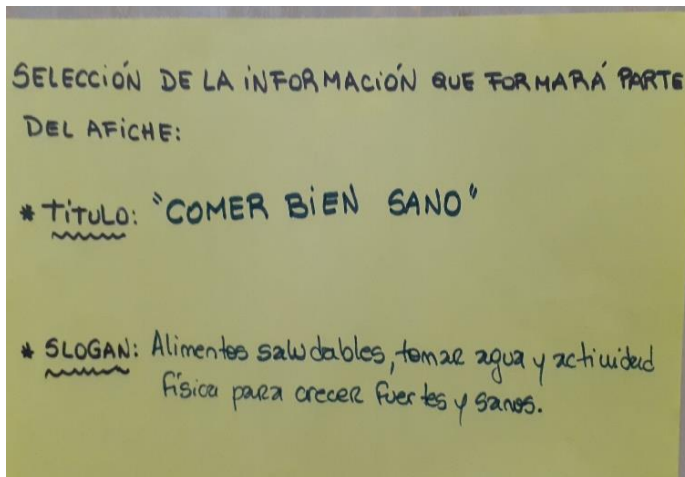 SELECCIÓN DE LA INFORMACIÓN QUE FORMARÁ PARTE
DEL AFICHE:
* TÍTULO: "COMER BIEN SANO"
* SLOGAN: Alimentos saludables, tomar agua y actividad
física para crecer fuertes y sanos.